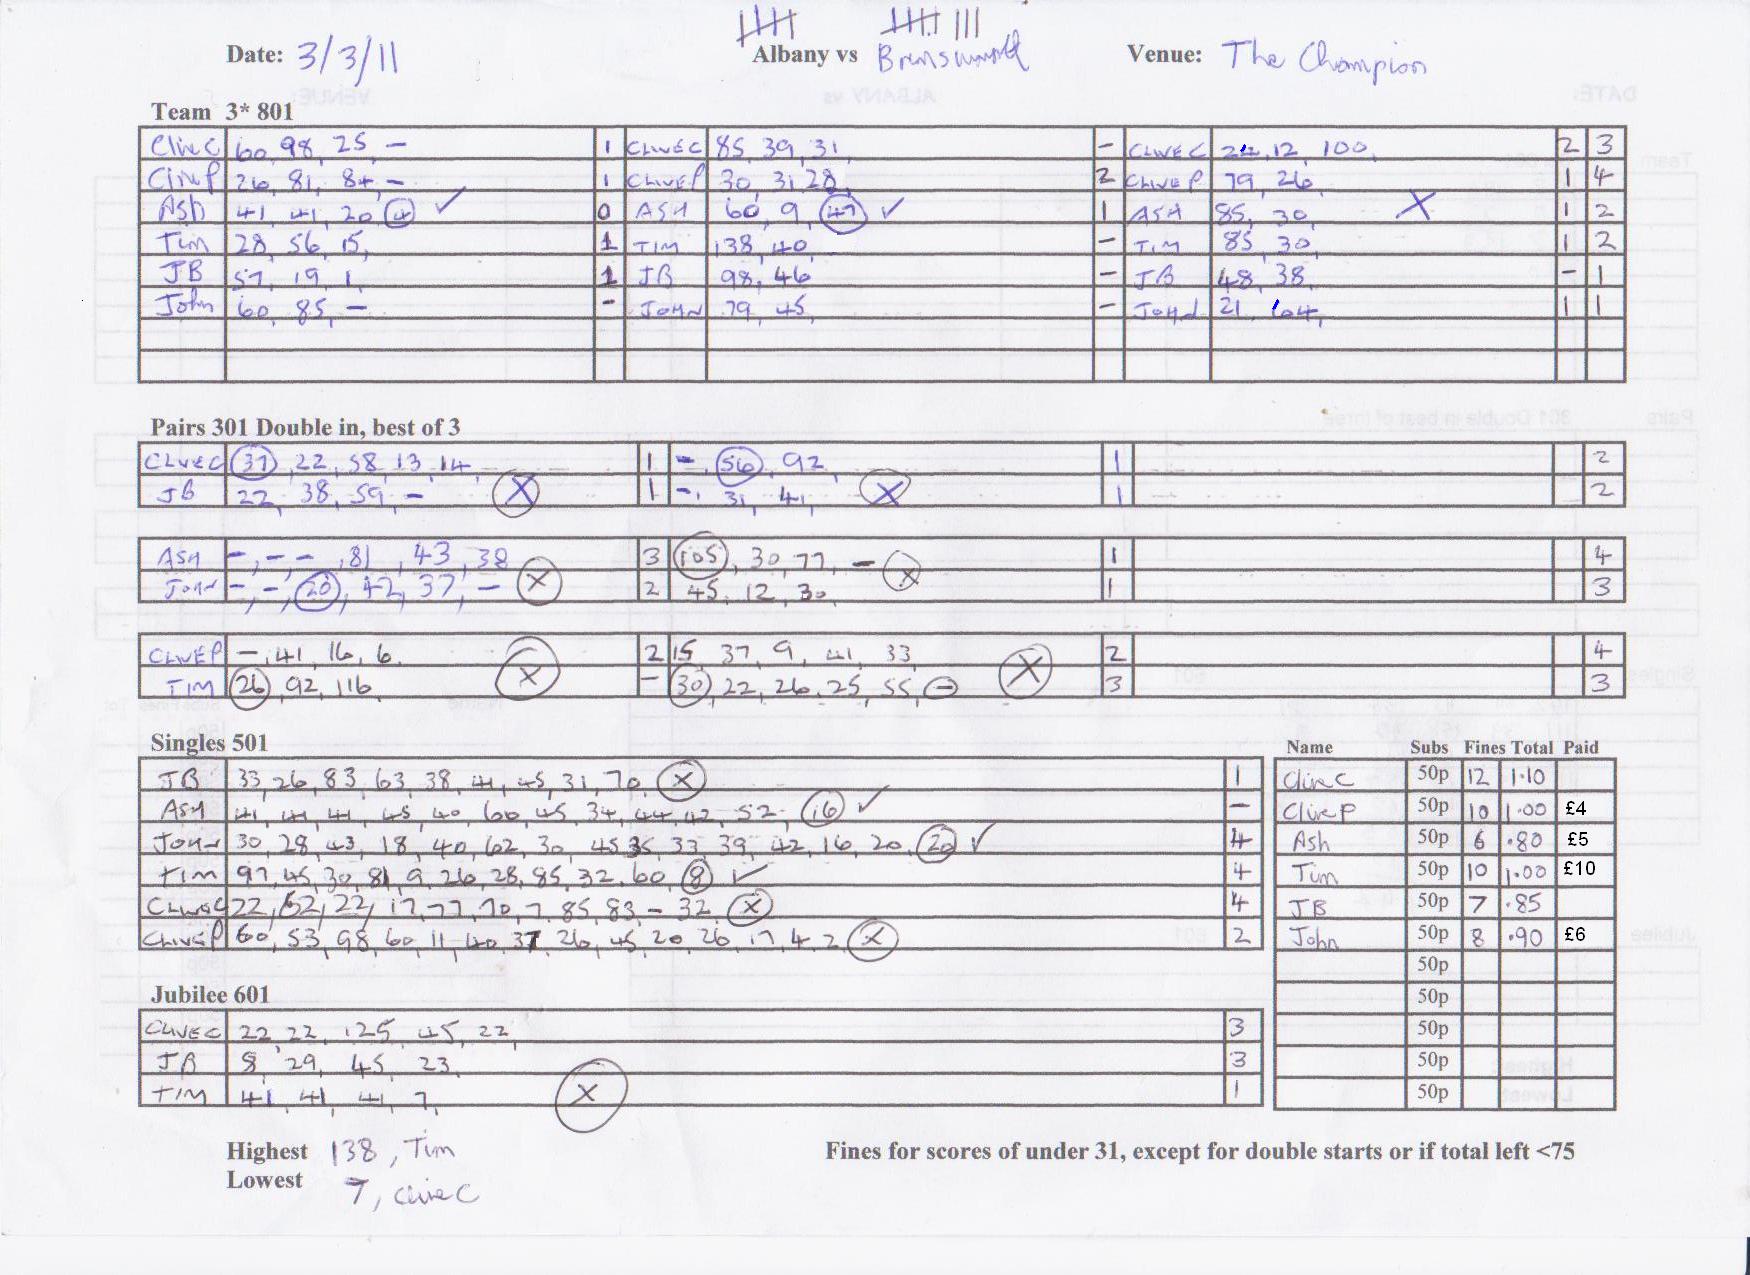 Date: 3/3/11 Albany vs Venue: The Champion
Team 3* 801
Clive C 60, 98, 25, - 1 CLIVE C 85, 39, 31, - CLIVE C 24, 12, 100, 2 3
Clive P 26, 81, 84, - 1 CLIVE P 30, 31, 28, 2 CLIVE P 79, 26, 1 4
Ash 41, 41, 20, 4 ✓ 0 ASH 60, 9, 47 ✓ 1 ASH 85, 30, X 1 2
Tim 28, 56, 15, 1 TIM 138, 40, - TIM 85, 30, 1 2
JB 57, 19, 1, 1 JB 98, 46 - JB 48, 38, - 1
John 60, 85, - - JOHN 79, 45, - JOHN 21, 64, 1 1
Pairs 301 Double in, best of 3
CLIVE C 37, 22, 58, 13, 14, 1 -, 56, 92, 1 2
JB 22, 38, 59, - X 1 -, 31, 41, X 1 2
ASH -, -, -, 81, 43, 38 3 105, 30, 77, - X 1 4
JOHN -, -, 20, 42, 37, - X 2 45, 12, 30, 1 3
CLIVE P -, 41, 16, 6, 2 15, 37, 9, 41, 33, 2 4
TIM 26, 92, 116, X - 30, 22, 26, 25, 55, - X 3 3
Singles 501
JB 33, 26, 83, 63, 38, 41, 45, 31, 70, X 1
ASH 41, 41, 41, 45, 40, 60, 45, 34, 44, 42, 52, 16 ✓ -
JOHN 30, 28, 43, 18, 40, 62, 30, 45, 35, 33, 39, 42, 16, 20, 20 ✓ 4
TIM 97, 45, 30, 81, 9, 26, 28, 85, 32, 60, 8 ✓ 4
CLIVE C 22, 62, 22, 17, 77, 70, 7, 85, 83, - 32, X 4
CLIVE P 60, 53, 98, 60, 11, 40, 37, 26, 45, 20, 26, 17, 4, 2, X 2
Name Subs Fines Total Paid
Clive C 50p 12 1.10
Clive P 50p 10 1.00 £4
Ash 50p 6 .80 £5
Tim 50p 10 1.00 £10
JB 50p 7 .85
John 50p 8 .90 £6
50p
50p
50p
50p
50p
Jubilee 601
CLIVE C 22, 22, 125, 45, 22, 3
JB 8, 29, 45, 23, 3
TIM 41, 41, 41, 7, X 1
Highest 138, Tim
Lowest 7, Clive C
Fines for scores of under 31, except for double starts or if total left <75